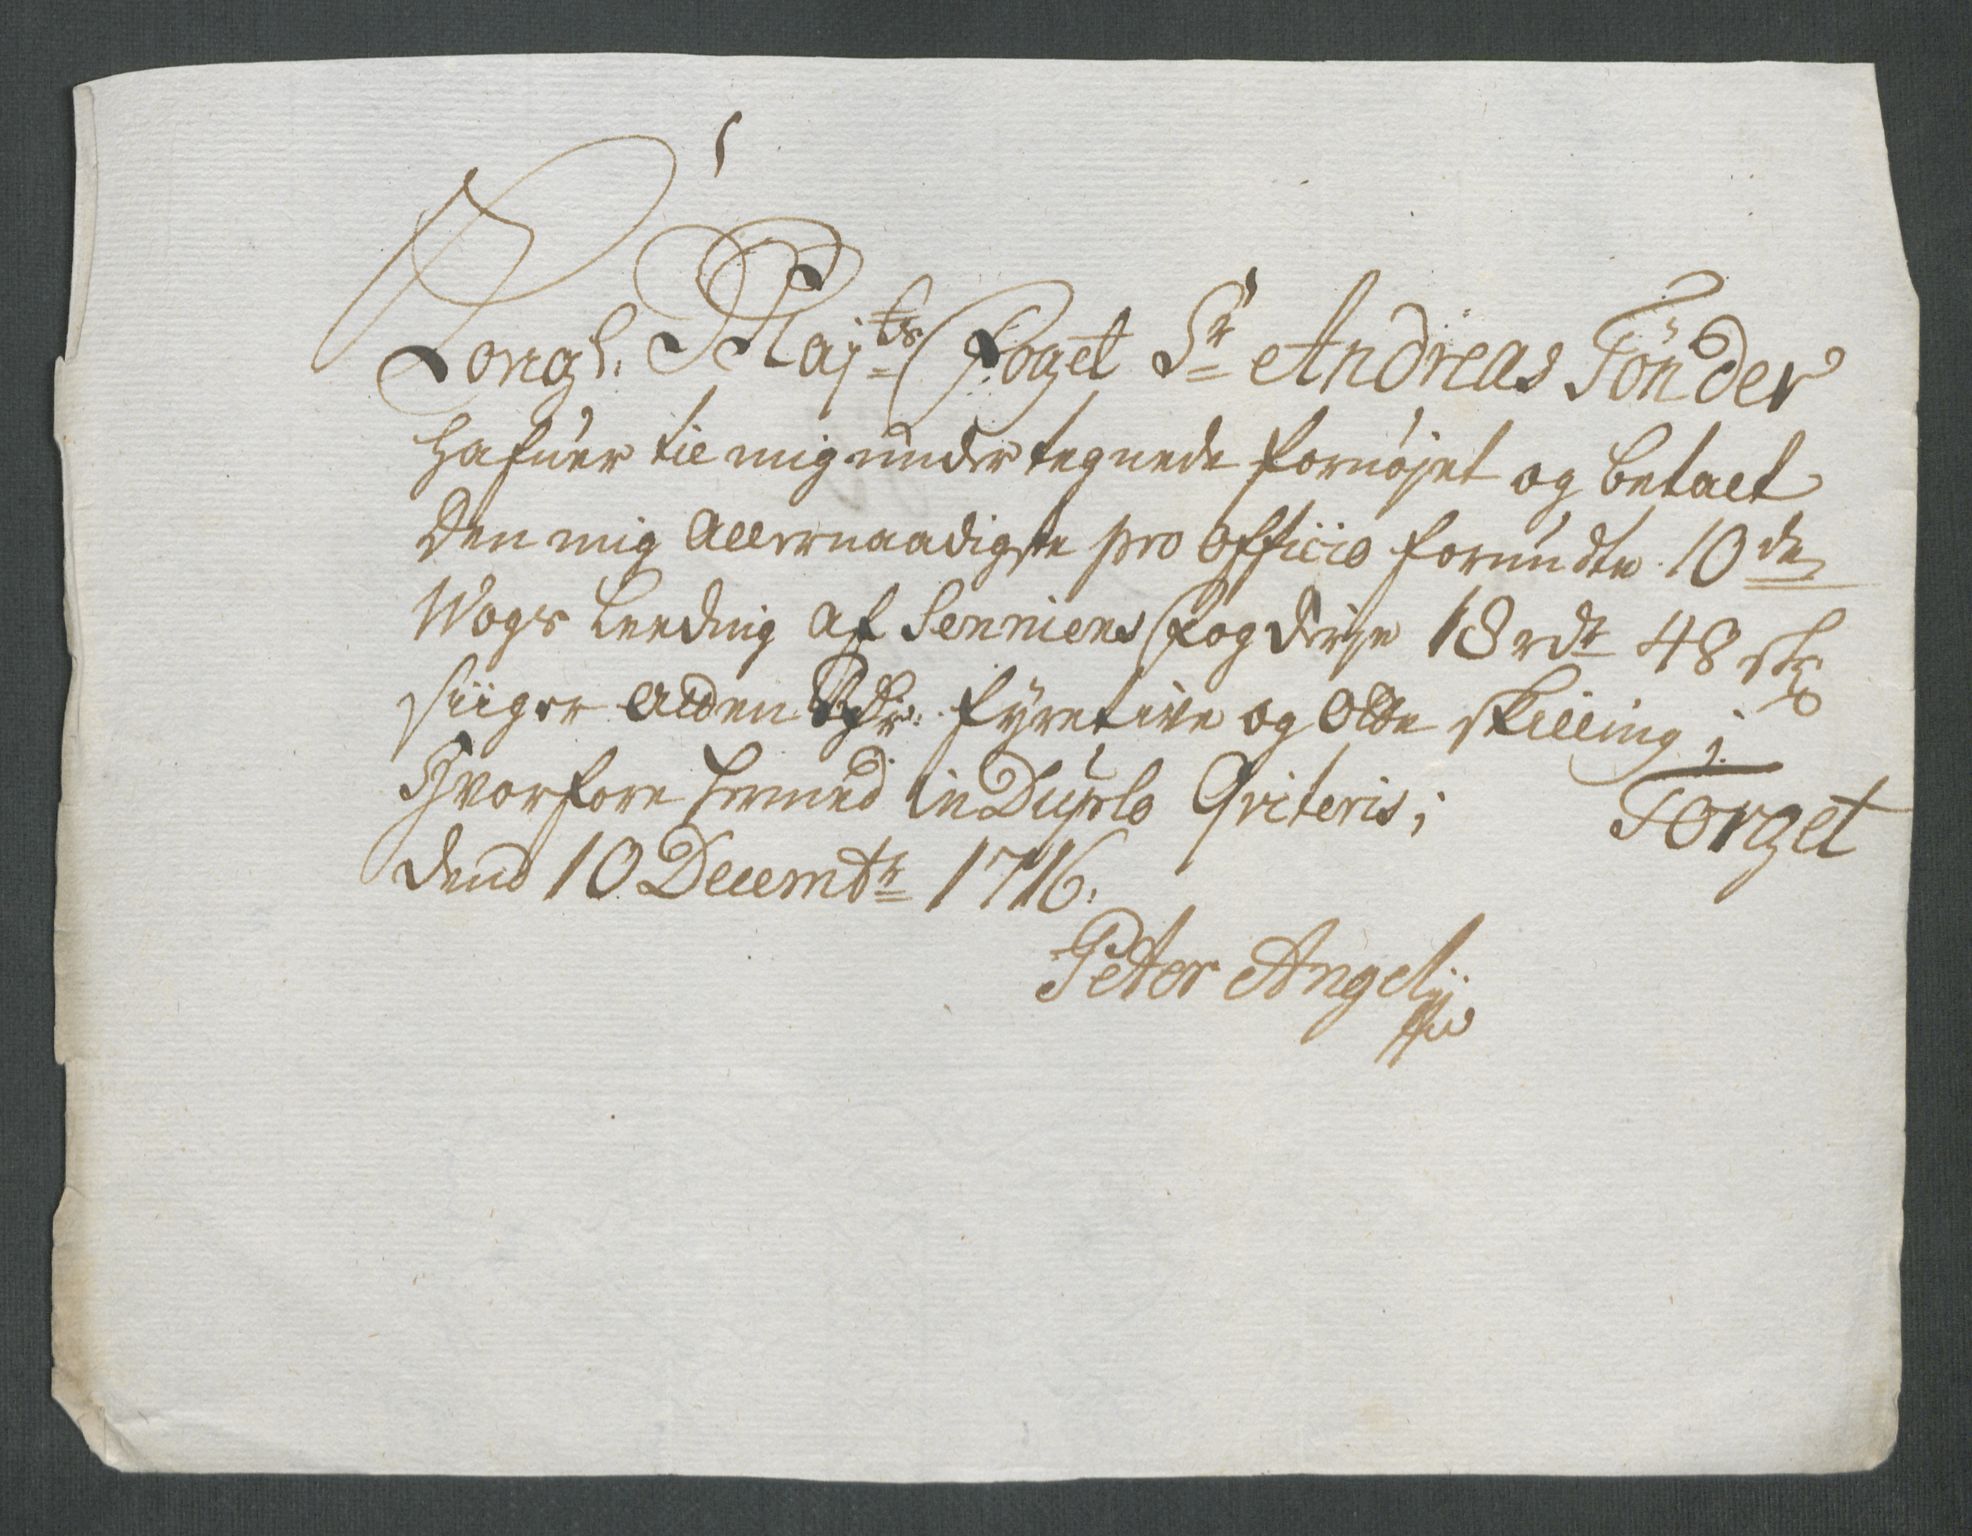 Kongl. Maj.ts Foget Sr Andreas Tönder
hafuer til mig undertegnede fornøjet og betalt
den mig Allernaadigste pro Officio forundte 10de
Wogs Leeding af Senniens Fogderje 18 rdr 48 sk
siiger Atten Rdr. fyretive og Otte skilling;
Hvorfore hermed in Duplo Qviteris; Torget
dend 10 Decembr 1716.
Peter Angell